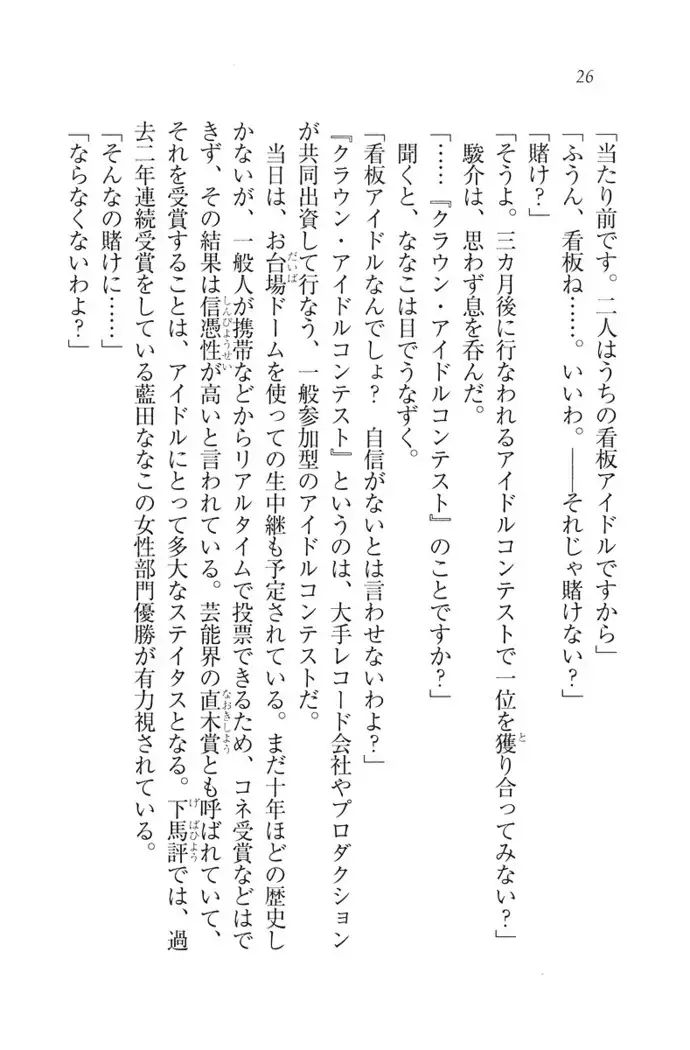 26
「当たり前です。二人はうちの看板アイドルですから」
「ふうん、看板ね……。いいわ。――それじゃ賭けない？」
「賭け？」
「そうよ。三カ月後に行なわれるアイドルコンテストで一位を獲り合ってみない？」
駿介は、思わず息を呑んだ。
「……『クラウン・アイドルコンテスト』のことですか？」
聞くと、ななこは目でうなずく。
「看板アイドルなんでしょ？　自信がないとは言わせないわよ？」
『クラウン・アイドルコンテスト』というのは、大手レコード会社やプロダクション
が共同出資して行なう、一般参加型のアイドルコンテストだ。
当日は、お台場ドームを使っての生中継も予定されている。まだ十年ほどの歴史し
かないが、一般人が携帯などからリアルタイムで投票できるため、コネ受賞などはで
きず、その結果は信憑性が高いと言われている。芸能界の直木賞とも呼ばれていて、
それを受賞することは、アイドルにとって多大なステイタスとなる。下馬評では、過
去二年連続受賞をしている藍田ななこの女性部門優勝が有力視されている。
「そんなの賭けに……」
「ならなくないわよ？」